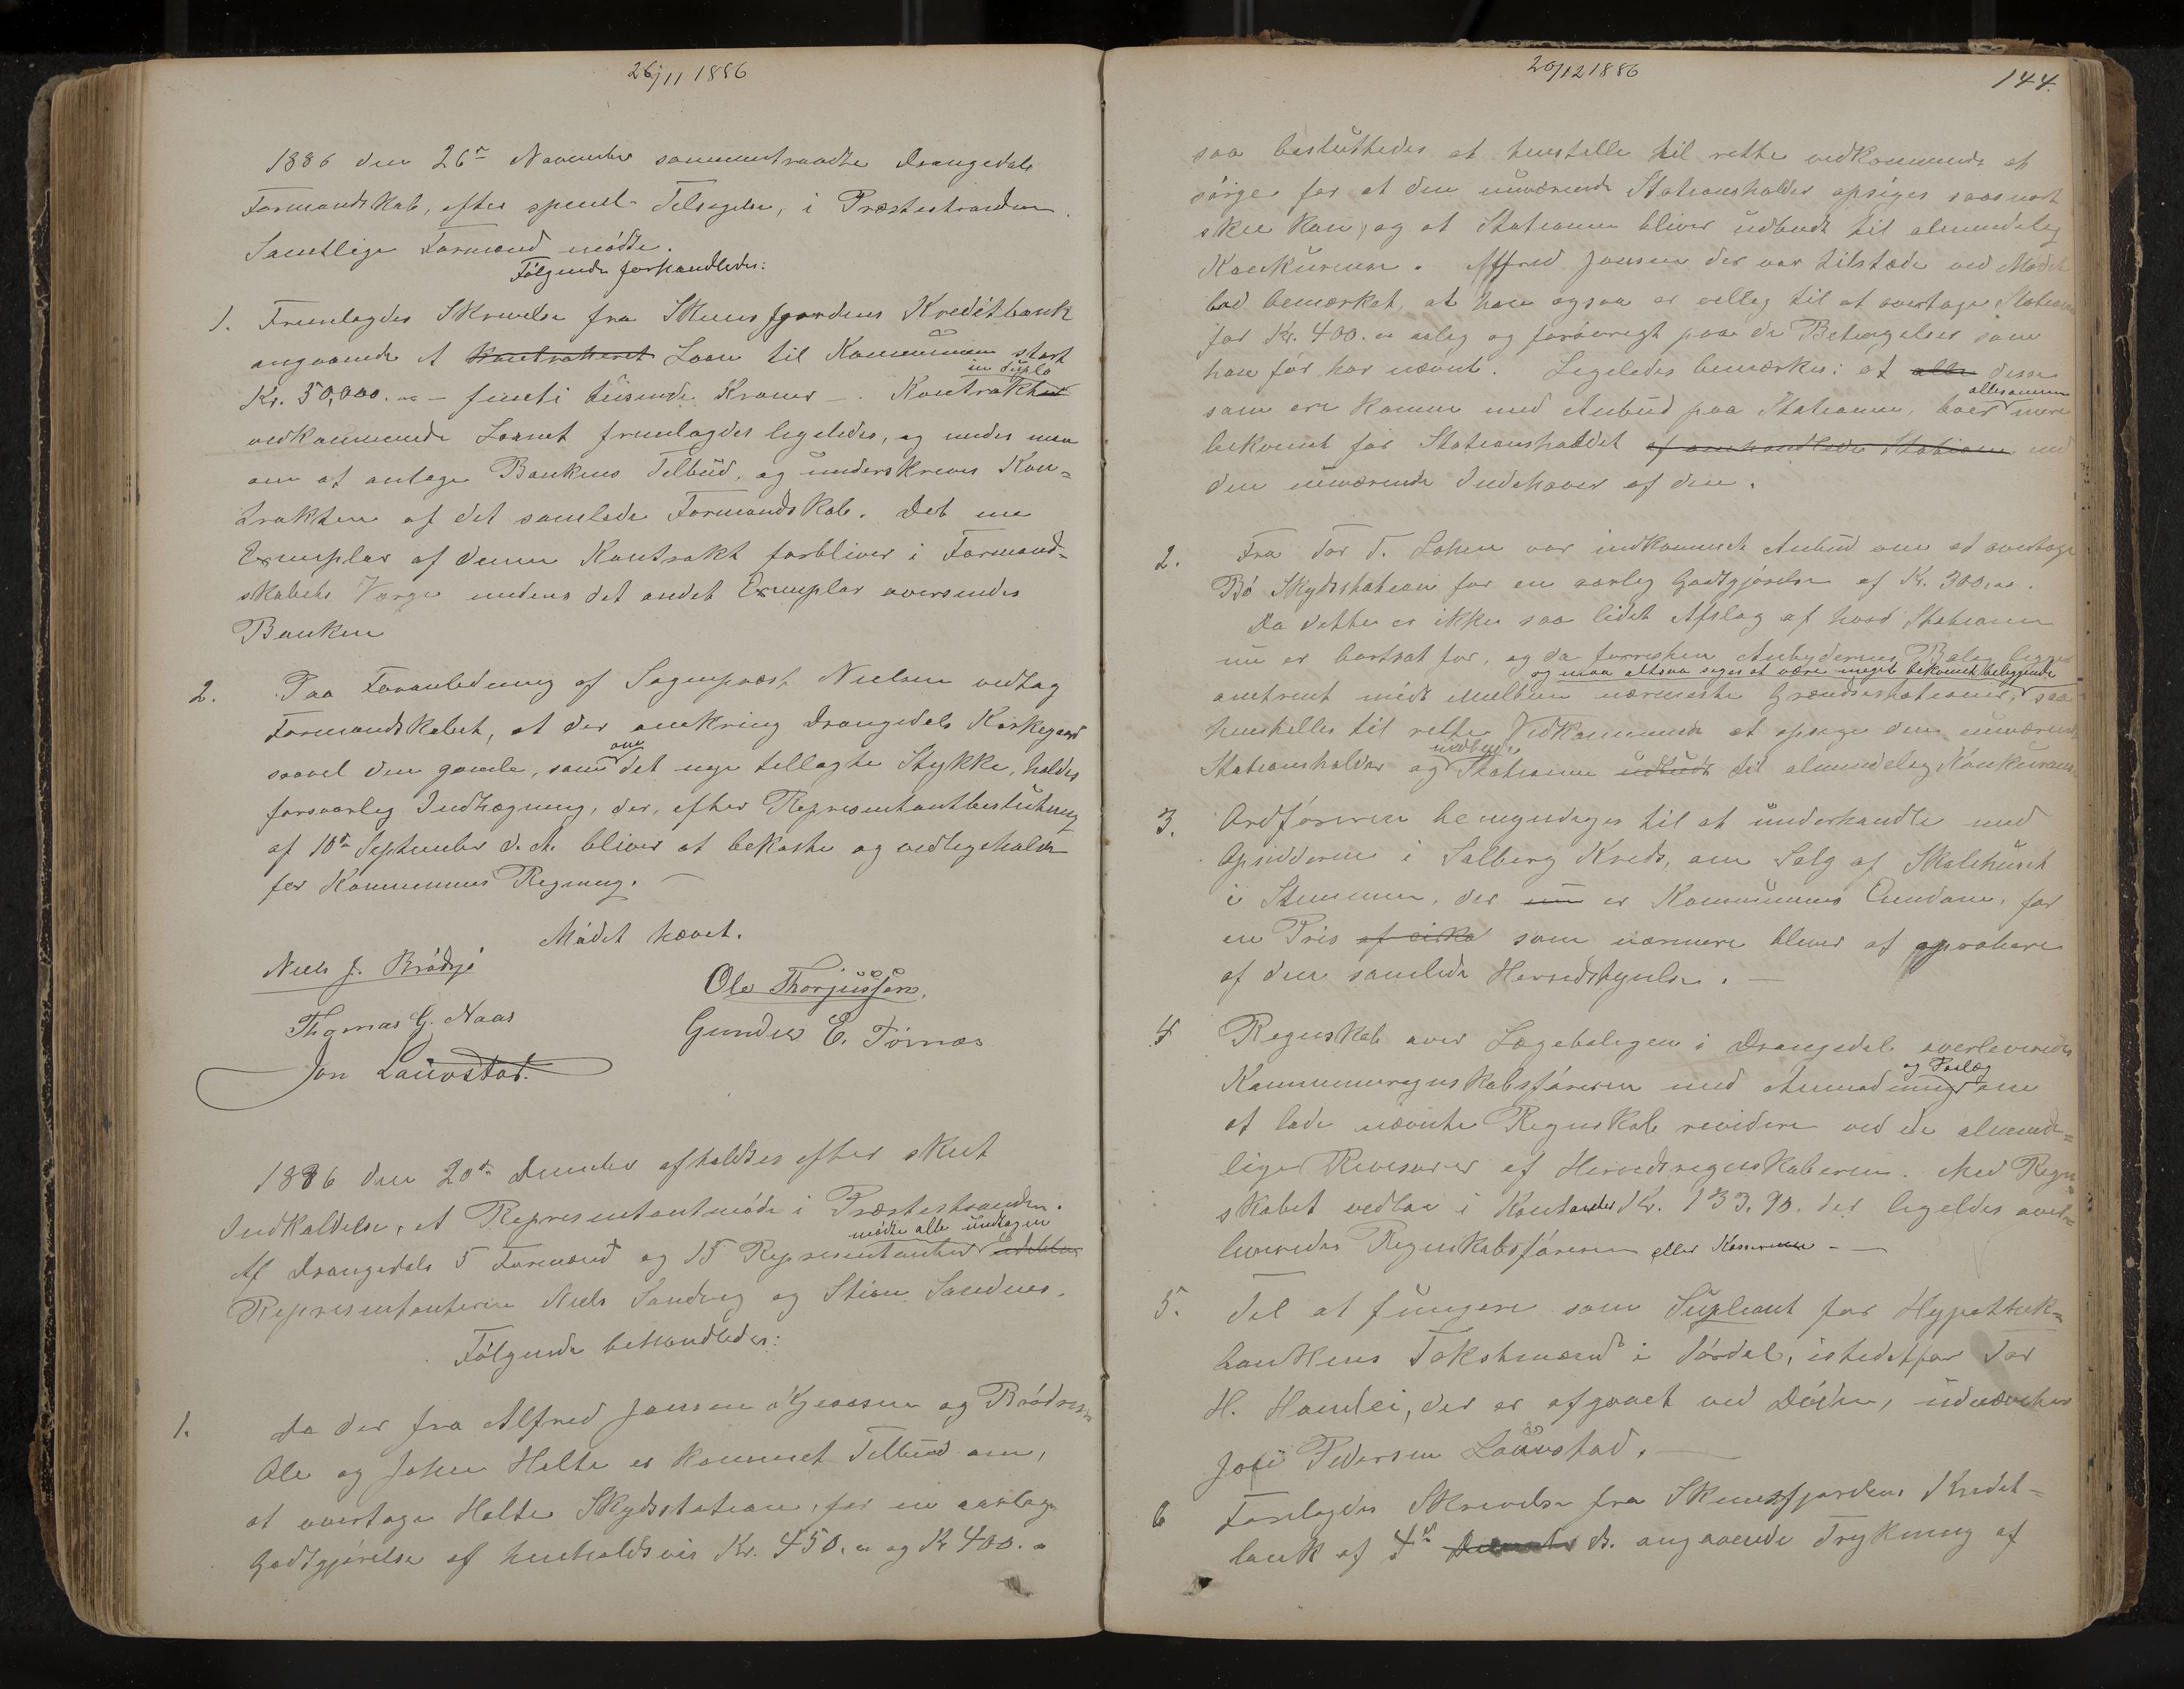 26/11 1886
1886 den 26de November sammentraadte Drangedals
Formandskab, efter speciel Tilsigelse, i Præstestranden.
Samtlige Formænd mødte.
Følgende forhandledes:
1. Fremlagdes Skrivelse fra Skiensfjordens Kreditbank
angaaende et kontraheret Laan til Kommunen stort
in duplo
Kr. 50,000.00 – femti tusinde Kroner –. Kontrakten
vedkommende Laanet fremlagdes ligeledes, og enedes man
om at antage Bankens Tilbud, og underskreves Kon-
trakten af det samlede Formandskab. Det ene
Exemplar af denne Kontrakt forbliver i Formand-
skabets Værge medens det andet Exemplar oversendes
Banken
2. Paa Foranledning af Sognepræst Nielsen vedtog
Formandskabet, at der omkring Drangedals Kirkegaard
om
saavel den gamle, som det nye tillagte Stykke, holdes
forsvarlig Indhægning, der, efter Representantbeslutning
af 10de September d. A. bliver at bekoste og vedligeholde
for Kommunens Regning. –
Mødet hævet.
Niels J. Brødsjø
Ole Thorjussen.
Thomas G. Naas
Gunder E. Tørnæs
Jon Lauvstad.
1886 den 20de December afholdtes efter skeet
Indkaldelse, et Representantmøde i Præstestranden.
mødte alle undtagen
Af Drangedals 5 Formænd og 15 Representanter udeblev
Representanterne Niels Sandvig og Stian Sandnes.
Følgende behandledes:
1. Da der fra Alfred Jansen Kjeaasen og Brødrene
Ole og John Holte er kommet Tilbud om,
at overtage Holte Skydsstation, for en aarlig
Godtgjørelse af henholdsvis Kr. 450.00 og Kr 400.00
20/12 1886
144.
saa besluttedes at henstille til rette vedkommende at
sørge for at den nuværende Stationsholder opsiges saasnart
skee kan, og at Stationen bliver udbudt til almindelig
Konkurense. Alfred Jansen der var tilstæde ved Mødet
lod bemærket, at han ogsaa er villig til at overtage Stationen
for Kr. 400.00 aarlig og forøvrigt paa de Betingelser som
han før har nævnt. Ligeledes bemærkes: at alle disse
allesammen
som ere komne med Anbud paa Stationen, boer mere
bekvemt for Stationsholdet af omhandlede Station end
den nuværende Indehaver af den.
2. Fra Tor T. Lohne var indkommet Anbud om at overtage
Bø Skydsstation for en aarlig Godtgjørelse af Kr. 300.00.
Da dette er ikke saa lidet Afslag af hvad Stationen
nu er bortsat for, og da forresten Anbyderens Bolig ligger
og maa altsaa siges at være meget bekvemt beliggende
omtrent midt imellem nærmeste Grændsestationer, saa
henstilles til rette Vedkommende at opsige den nuværende
udbyde
Stationsholder og Stationen udbudt til almindelig Konkurense
3. Ordføreren bemyndiges til at underhandle med
Opsidderne i Solberg Kreds, om Salg af Skolehuset
i Stemmen, der nu er Kommunens Eiendom, for
en Pris af cirka som nærmere bliver at aprobere
af den samlede Herredstyrelse. –
4 Regnskab over Lægeboligen i Drangedal overleveredes
og Paalæg
Kommuneregnskabsføreren med Anmodning om
at lade nævnte Regnskab revidere ved de alminde-
lige Revisorer af Herredsregnskaberne. Med Regn-
skabet vedlaa i Kontanter Kr. 133.90. der ligeledes over-
leveredes Regnskabsføreren eller Kassereren – –
5. Til at fungere som Supleant for Hypothek-
bankens Takstmænd i Tørdal, istedetfor Tor
H. Homlei, der er afgaaet ved Døden, udnævntes
Jofi Pedersen Lauvstad. –
6 Forelagdes Skrivelse fra Skiensfjordens Kredit-
bank af 4de December ds. angaaende Trykning af